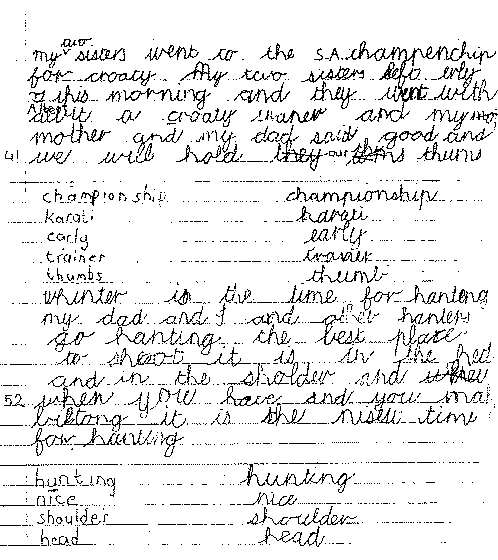 two
my sisters went to the S.A. champenchip
for croaty. My two sisters left erly
this morning and they went with
a croaty and my
mother and my dad said good and
41 we will hold thums
championship championship
karati karati
early early
trainer
thumbs thumb
whinter is the time for hanteng
my dad and I and other hanters
go hanting. the best place
to shoot it is in the hed
and in the sholder and
52 when you have and you mak
biktong it is the time
for hanting
hunting hunting
nice nice
shoulder shoulder
head head